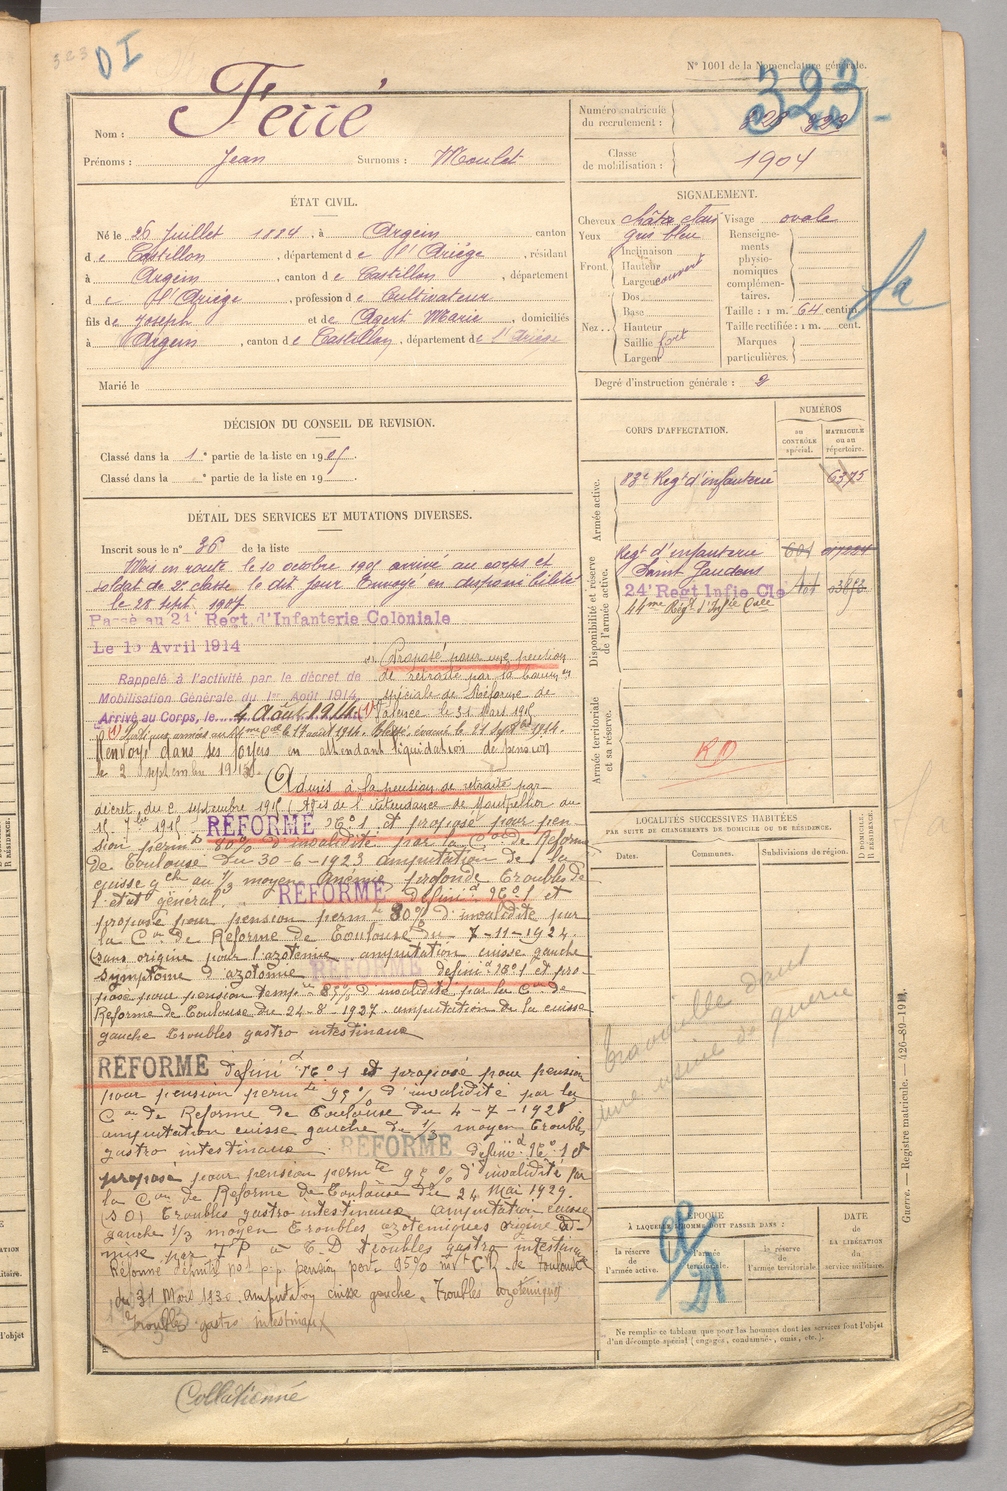 323
DI
N° 1001 de la Nomenclature générale.
323
Nom : Ferré
Prénoms : Jean Surnoms : Moulet
Numéro matricule
du recrutement : 323 323
Classe
de mobilisation : 1904
ÉTAT CIVIL.
Né le 26 Juillet 1884, à Argein canton
de Castillon, département de l'Ariège, résidant
à Argein, canton de Castillon, département
de l'Ariège, profession de Cultivateur
fils de Joseph et de Agert Marie, domiciliés
à Argein, canton de Castillon, département de l'Ariège
Marié le
SIGNALEMENT.
Cheveux châtn clair Visage ovale
Yeux gris bleu
Front. Inclinaison
Hauteur
Largeur couvert
Nez.. Dos
Base
Hauteur
Saillie fort
Largeur
Renseigne-
ments
physio-
nomiques
complémen-
taires.
Taille : 1 m. 64 centim.
Taille rectifiée : 1 m. cent.
Marques
particulières.
Degré d'instruction générale : 2
DÉCISION DU CONSEIL DE REVISION.
Classé dans la 1e partie de la liste en 1905.
Classé dans la e partie de la liste en 19
DÉTAIL DES SERVICES ET MUTATIONS DIVERSES.
Inscrit sous le n° 36 de la liste
Mis en route le 10 octobre 1905 arrivé au corps et
soldat de 2e classe le dit jour Envoyé en disponibilité
le 28 sept. 1907
Passé au 24e Regt d'Infanterie Coloniale
Le 10 Avril 1914
Proposé pour une pension
Rappelé à l'activité par le décret de
de retraite par la Comm on
Mobilisation Générale du 1er Août 1914
spéciale de Réforme de
Arrivé au Corps, le 4 Août 1914 (1)
le 31 Mars 1915
Renvoyé dans ses foyers en attendant liquidation de pension
le 2 septembre 1915.
Admis à la pension de retraite par
décret du 2 septembre 1915 (Avis de l'Intendance de Montpellier du
15. 7bre 1915 RÉFORMÉ N° 1 et proposé pour pen-
sion permte 80% d'invalidité par la Con de Réforme
de Toulouse du 30-6-1923 amputation de la
cuisse gche au 1/3 moyen Anémie profonde troubles de
l'état général. RÉFORMÉ définit N° 1 et
proposé pour pension permte 80% d'invalidité par
la Con de Réforme de Toulouse du 7-11-1924.
amputation cuisse gauche
symptôme d'azotémie RÉFORMÉ définit N° 1 et pro-
posé pour pension tempre 85% d'invalidité par la Con de
Réforme de Toulouse du 24-8-1927. amputation de la cuisse
gauche Troubles gastro intestinaux
RÉFORMÉ définit N° 1 et proposé pour pension
pour pension permte 95% d'invalidité par la
Con de Réforme de Toulouse du 4-7-1928
amputation cuisse gauche de 1/3 moyen Troubles
gastro intestinaux. RÉFORMÉ définit N° 1 et
proposé pour pension permte 95% d'invalidité par
la Con de Réforme de Toulouse du 24 Mai 1929.
(S O) Troubles gastro intestinaux amputation cuisse
gauche 1/3 moyen Troubles azotémiques origine ad-
mise par T P à T. D troubles gastro intestinaux
Réformé définitif n° 1 p.p. pension perm 95% invt CR de Toulouse
du 31 Mars 1930. amputation cuisse gauche. Troubles azotémiques
Troubles gastro intestinaux
CORPS D'AFFECTATION.
NUMÉROS
au
CONTRÔLE
spécial.
MATRICULE
ou au
répertoire.
Armée active.
83e Regt d'infanterie 6375
Disponibilité et réserve
de l'armée active.
Regt d'infanterie 601
Saint Gaudens
24e Regt Infie Cle
44me Regt d'Infie Cale
Armée territoriale
et sa réserve.
LOCALITÉS SUCCESSIVES HABITÉES
PAR SUITE DE CHANGEMENTS DE DOMICILE OU DE RÉSIDENCE.
Dates. Communes. Subdivisions de région. D DOMICILE.
R RÉSIDENCE
travaille dans
une usine de guerre
ÉPOQUE
À LAQUELLE L'HOMME DOIT PASSER DANS :
DATE
DE
LA LIBÉRATION
DU
service militaire.
la réserve
de l'armée active.
l'armée
territoriale.
la réserve de
l'armée territoriale.
Ne remplir ce tableau que pour les hommes dont les services font l'objet
d'un décompte spécial (engagés, condamnés, omis, etc.).
Guerre. — Registre matricule. — 426-89-1911.
Collationné